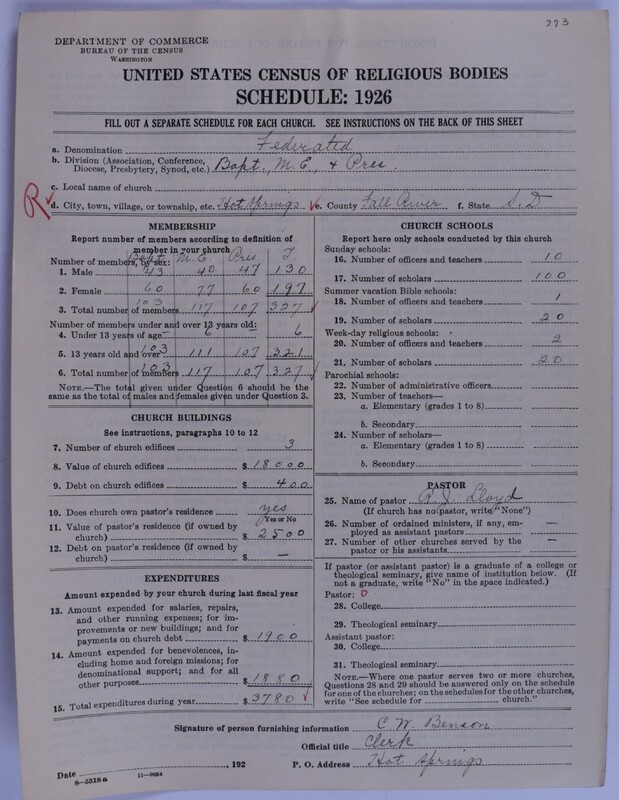 273
DEPARTMENT OF COMMERCE
BUREAU OF THE CENSUS
WASHINGTON
UNITED STATES CENSUS OF RELIGIOUS BODIES
SCHEDULE: 1926
FILL OUT A SEPARATE SCHEDULE FOR EACH CHURCH. SEE INSTRUCTIONS ON THE BACK OF THIS SHEET
a. Denomination Federated
b. Division (Association, Conference, Diocese, Presbytery, Synod, etc.) Bapt., M.E., & Pres.
c. Local name of church
R
d. City, town, village, or township, etc. Hot Springs e. County Fall River f. State S.D
MEMBERSHIP
Report number of members according to definition of
member in your church
Number of members, by sex: Bapt. M.E. Pres T.
1. Male 43 40 47 130
2. Female 60 77 60 197
3. Total number of members 103 117 107 327
Number of members under and over 13 years old:
4. Under 13 years of age 6 6
5. 13 years old and over 103 111 107 321
6. Total number of members 103 117 107 327
NOTE.—The total given under Question 6 should be the
same as the total of males and females given under Question 3.
CHURCH BUILDINGS
See instructions, paragraphs 10 to 12
7. Number of church edifices 3
8. Value of church edifices $ 18000
9. Debt on church edifices $ 400
10. Does church own pastor's residence yes
Yes or No
11. Value of pastor's residence (if owned by
church) $ 2500
12. Debt on pastor's residence (if owned by
church) $ —
EXPENDITURES
Amount expended by your church during last fiscal year
13. Amount expended for salaries, repairs,
and other running expenses; for im-
provements or new buildings; and for
payments on church debt $ 1900
14. Amount expended for benevolences, in-
cluding home and foreign missions; for
denominational support; and for all
other purposes $ 1880
15. Total expenditures during year $ 3780
CHURCH SCHOOLS
Report here only schools conducted by this church
Sunday schools:
16. Number of officers and teachers 10
17. Number of scholars 100
Summer vacation Bible schools:
18. Number of officers and teachers 1
19. Number of scholars 20
Week-day religious schools:
20. Number of officers and teachers 2
21. Number of scholars 20
Parochial schools:
22. Number of administrative officers
23. Number of teachers—
a. Elementary (grades 1 to 8)
b. Secondary
24. Number of scholars—
a. Elementary (grades 1 to 8)
b. Secondary
PASTOR
25. Name of pastor R. J. Lloyd
(If church has no pastor, write "None")
26. Number of ordained ministers, if any, em-
ployed as assistant pastors —
27. Number of other churches served by the
pastor or his assistants —
If pastor (or assistant pastor) is a graduate of a college or
theological seminary, give name of institution below. (If
not a graduate, write "No" in the space indicated.)
Pastor: 0
28. College
29. Theological seminary
Assistant pastor:
30. College
31. Theological seminary
NOTE.—Where one pastor serves two or more churches,
Questions 28 and 29 should be answered only on the schedule
for one of the churches; on the schedules for the other churches,
write "See schedule for church."
Signature of person furnishing information C. W. Benson
Official title Clerk
Date , 192 P. O. Address Hot Springs
8—5518a 11—9084